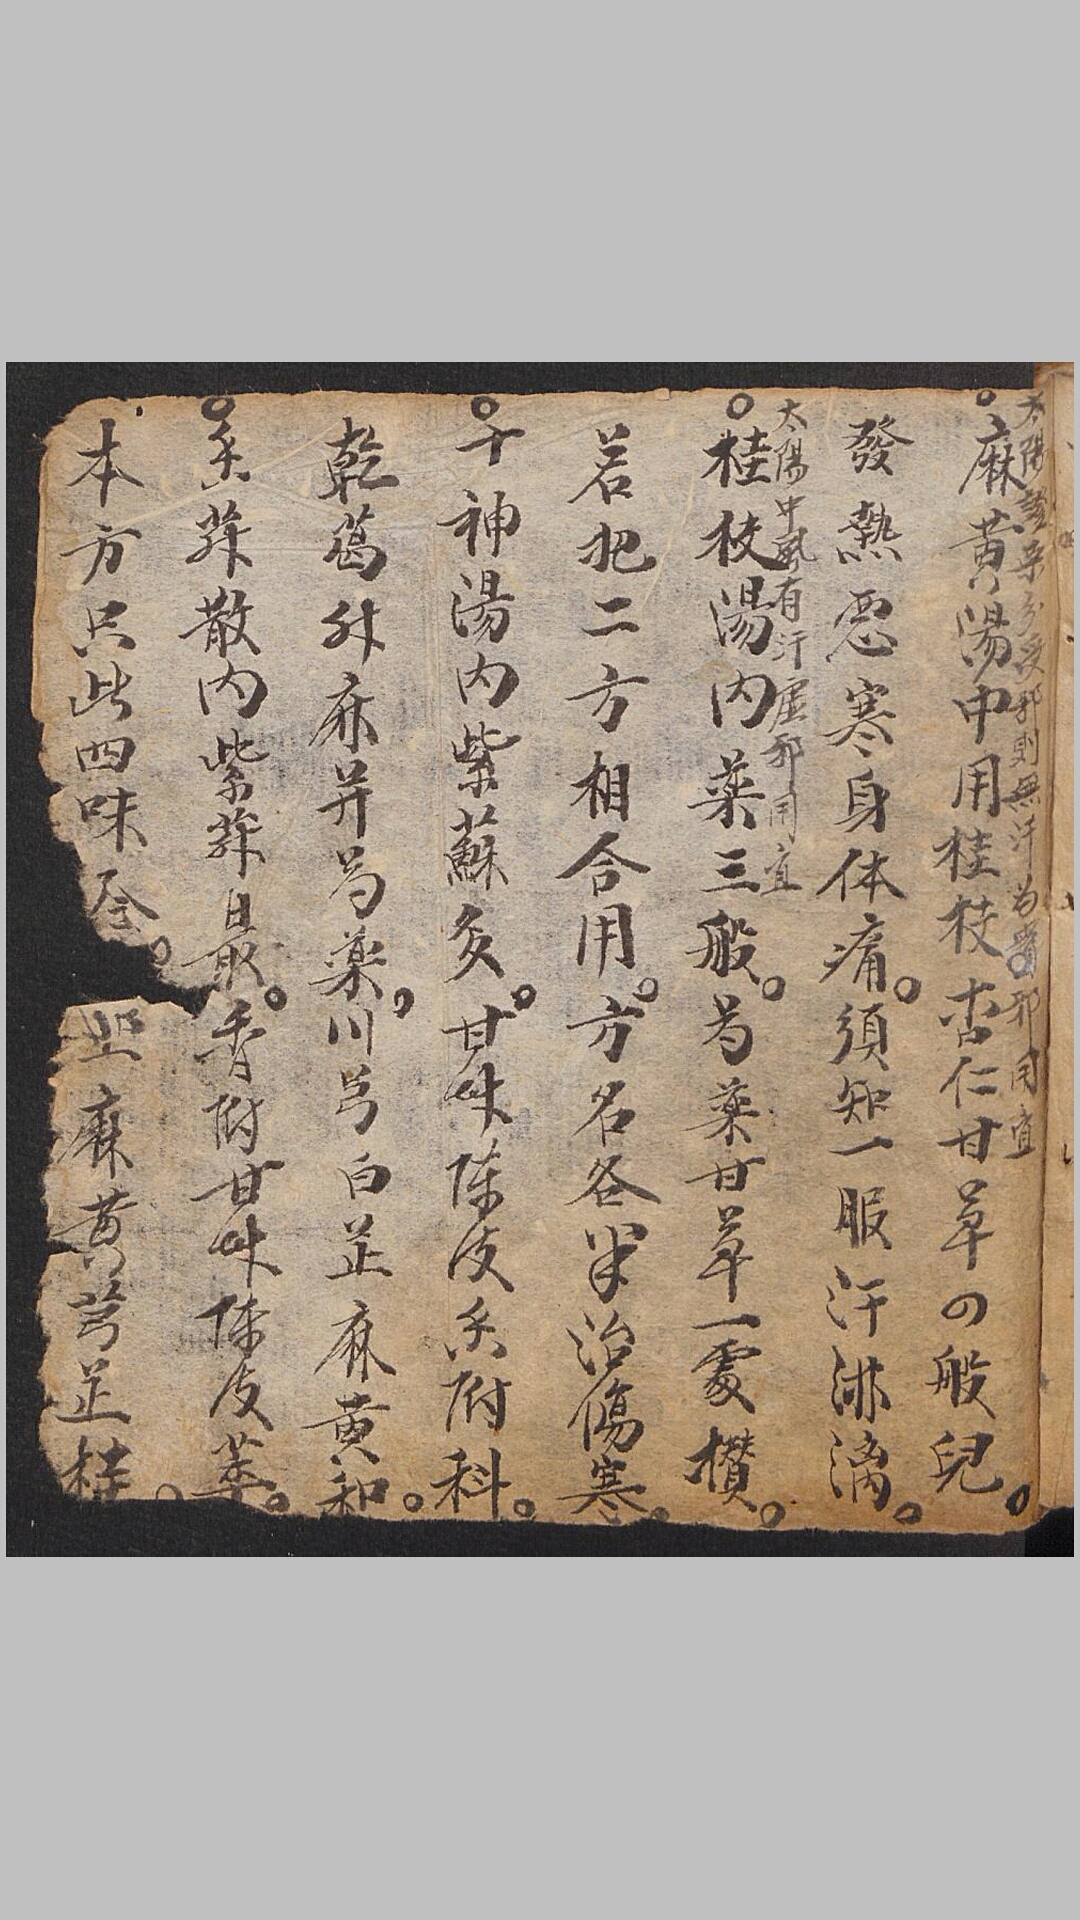 太陽證榮分受邪則無汗为實邪用宜
麻黄湯中用桂枝杏仁甘草四般兒
發熱惡寒身体痛須知一服汗淋漓
太陽中風有汗虛邪用宜
桂枝湯内薬三般芍薬甘草一處攢
若把二方相合用方名各半治傷寒
十神湯内紫蘇炙甘草陳皮香附科
乾葛升麻并芍薬川芎白芷麻黄和
香蘇散内紫蘇最香附甘草陳皮
本方只此四味 麻黄芎芷桂